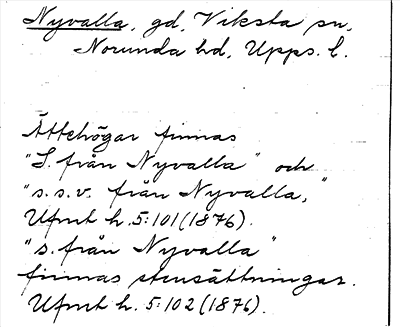 Nyvalla, gd, Viksta sn,
Norunda hd, Upps. l.
Ättehögar finnas
"S. från Nyvalla" och
"s.s.v. från Nyvalla,"
Ufmt h. 5:101 (1876).
"s. från Nyvalla"
finnas stensättningar.
Ufmt h. 5:102 (1876).